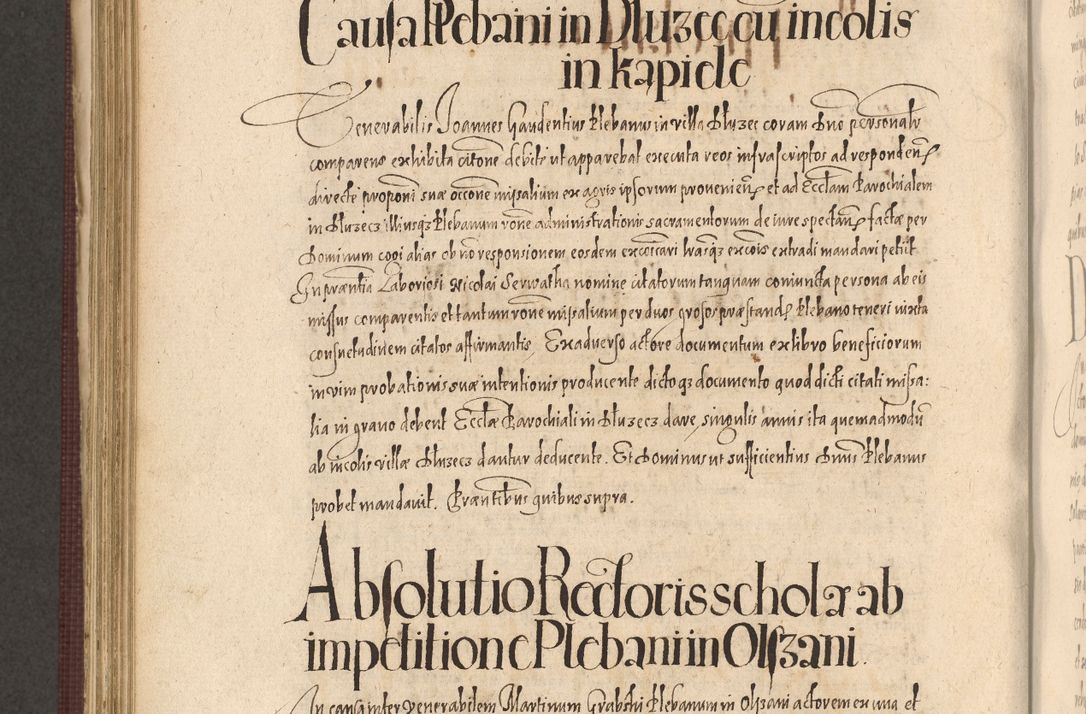 Causa Plebani in Dluzec cū incolis
in kąpiele
Venerabilis Joannes Gaudentius Plebanus in villa Dluzec coram Dnō personalr
comparens exhibita citōne debite ut apparebat executa reos infrascriptos ad respondenꝝ
directe proponi suæ occōne missalium ex agris ipsorum provenienꝝ et ad Eccłam Parochialem
in Dluzecz illiusqȝ Plebanum rōne administrationis sacramentorum de iure spectanꝝ factæ per
Dominum cogi alias ob nō responsionem eosdem excōīcari lrasqȝ excōīs extradi mandari petiit
In præntia Laboriosi Nicolai Serwatha nomine citatorum tanquam coniuncta persona ab eis
missus comparentis et tantum rōne missalium per duos grosos præstandꝝ Plebano teneri iuxta
consuetudinem citatos affirmantis. Ex adverso actore documentum ex libro beneficiorum
in vim probationis suæ intentionis producente dictoqȝ documento quod dicti citati missa:
lia in grano debent Ecclæ Parochiali in Dluzecz dare, singulis annis ita quemadmodū
ab incolis villæ Dluzecz dantur deducente. Et Dominus ut sufficientius Dnus Plebanus
probet mandavit. Præntibus quibus supra.
Absolutio Rectoris scholæ ab
impetitione Plebani in Olszani.
In causa inter Venerabilem Martinum Grabski Plebanum in Olszani actorem ex una et